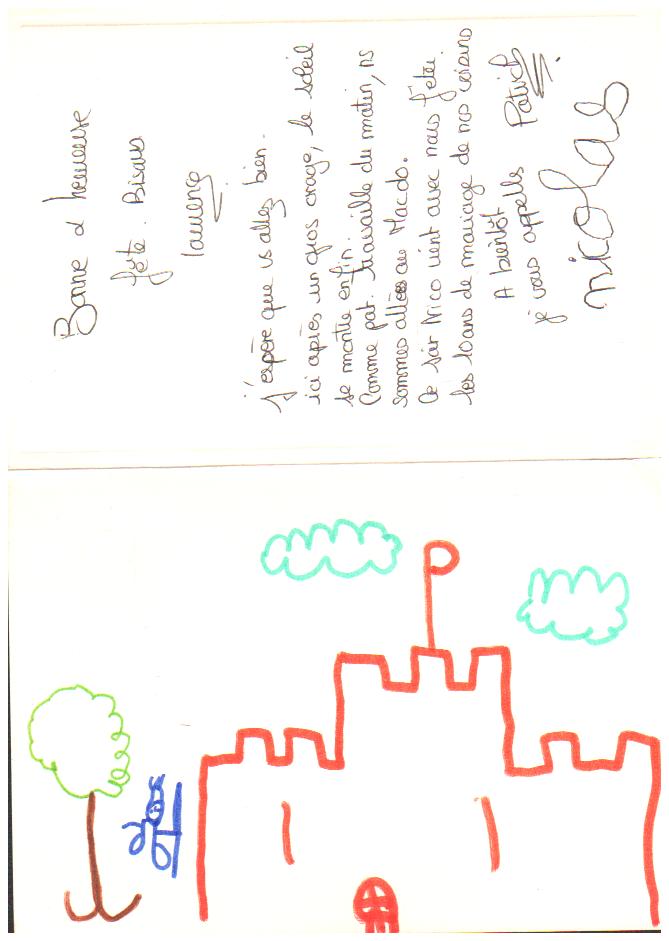 Bonne & heureuse
fête. Bisous
Laurence
J'espère que vs allez bien.
ici après un gros orage, le soleil
se montre enfin.
Comme pat. travaille du matin, ns
sommes allées au Macdo.
Ce soir Nico vient avec nous fêter
les 10 ans de mariage de nos voisins
A bientôt
je vous appelle
Patrick
nicolas